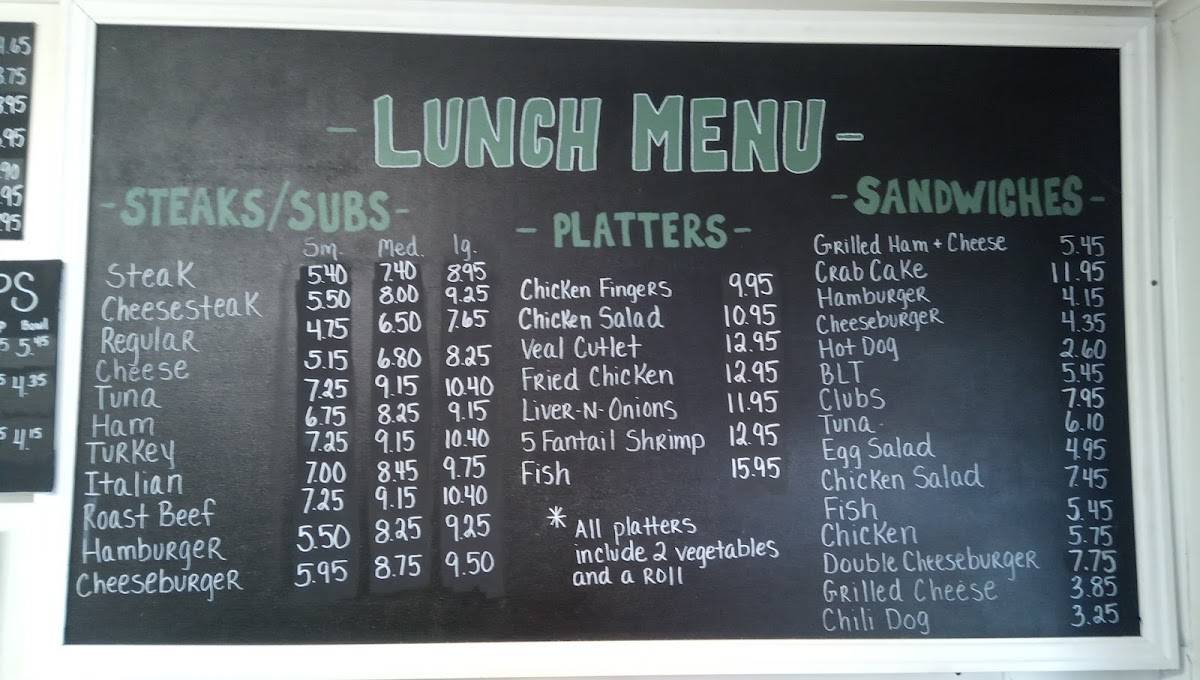 4.65
3.75
3.95
.95
.90
.95
.95
PS
Bowl
5 5.45
5 4.35
5 4.15
- LUNCH MENU -
- STEAKS/SUBS -
Sm. Med. lg.
Steak 5.40 7.40 8.95
Cheesesteak 5.50 8.00 9.25
Regular 4.75 6.50 7.65
Cheese 5.15 6.80 8.25
Tuna 7.25 9.15 10.40
Ham 6.75 8.25 9.15
Turkey 7.25 9.15 10.40
Italian 7.00 8.45 9.75
Roast Beef 7.25 9.15 10.40
Hamburger 5.50 8.25 9.25
Cheeseburger 5.95 8.75 9.50
- PLATTERS -
Chicken Fingers 9.95
Chicken Salad 10.95
Veal Cutlet 12.95
Fried Chicken 12.95
Liver-N-Onions 11.95
5 Fantail Shrimp 12.95
Fish 15.95
* All platters
include 2 vegetables
and a Roll
- SANDWICHES -
Grilled Ham + Cheese 5.45
Crab Cake 11.95
Hamburger 4.15
Cheeseburger 4.35
Hot Dog 2.60
BLT 5.45
Clubs 7.95
Tuna 6.10
Egg Salad 4.95
Chicken Salad 7.45
Fish 5.45
Chicken 5.75
Double Cheeseburger 7.75
Grilled Cheese 3.85
Chili Dog 3.25